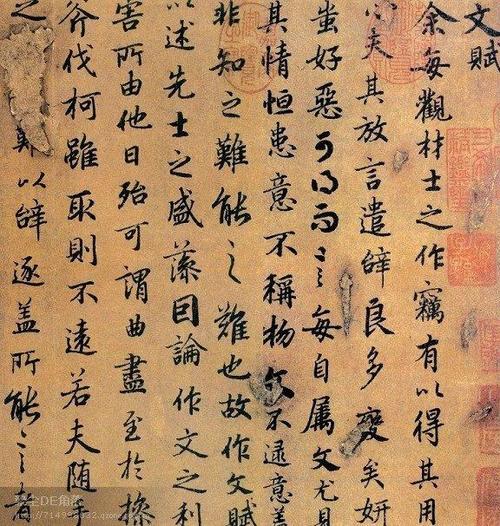 文賦
余每觀材士之作竊有以得其用
心夫其放言遣辭良多變矣妍
蚩好惡可得而言每自属文尤見
其情恒患意不稱物文不逮意盖
非知之難能之難也故作文賦
以述先士之盛藻因論作文之利
害所由他日殆可謂曲盡至於操
斧伐柯雖取則不遠若夫随
之難以辭逐盖所能言者